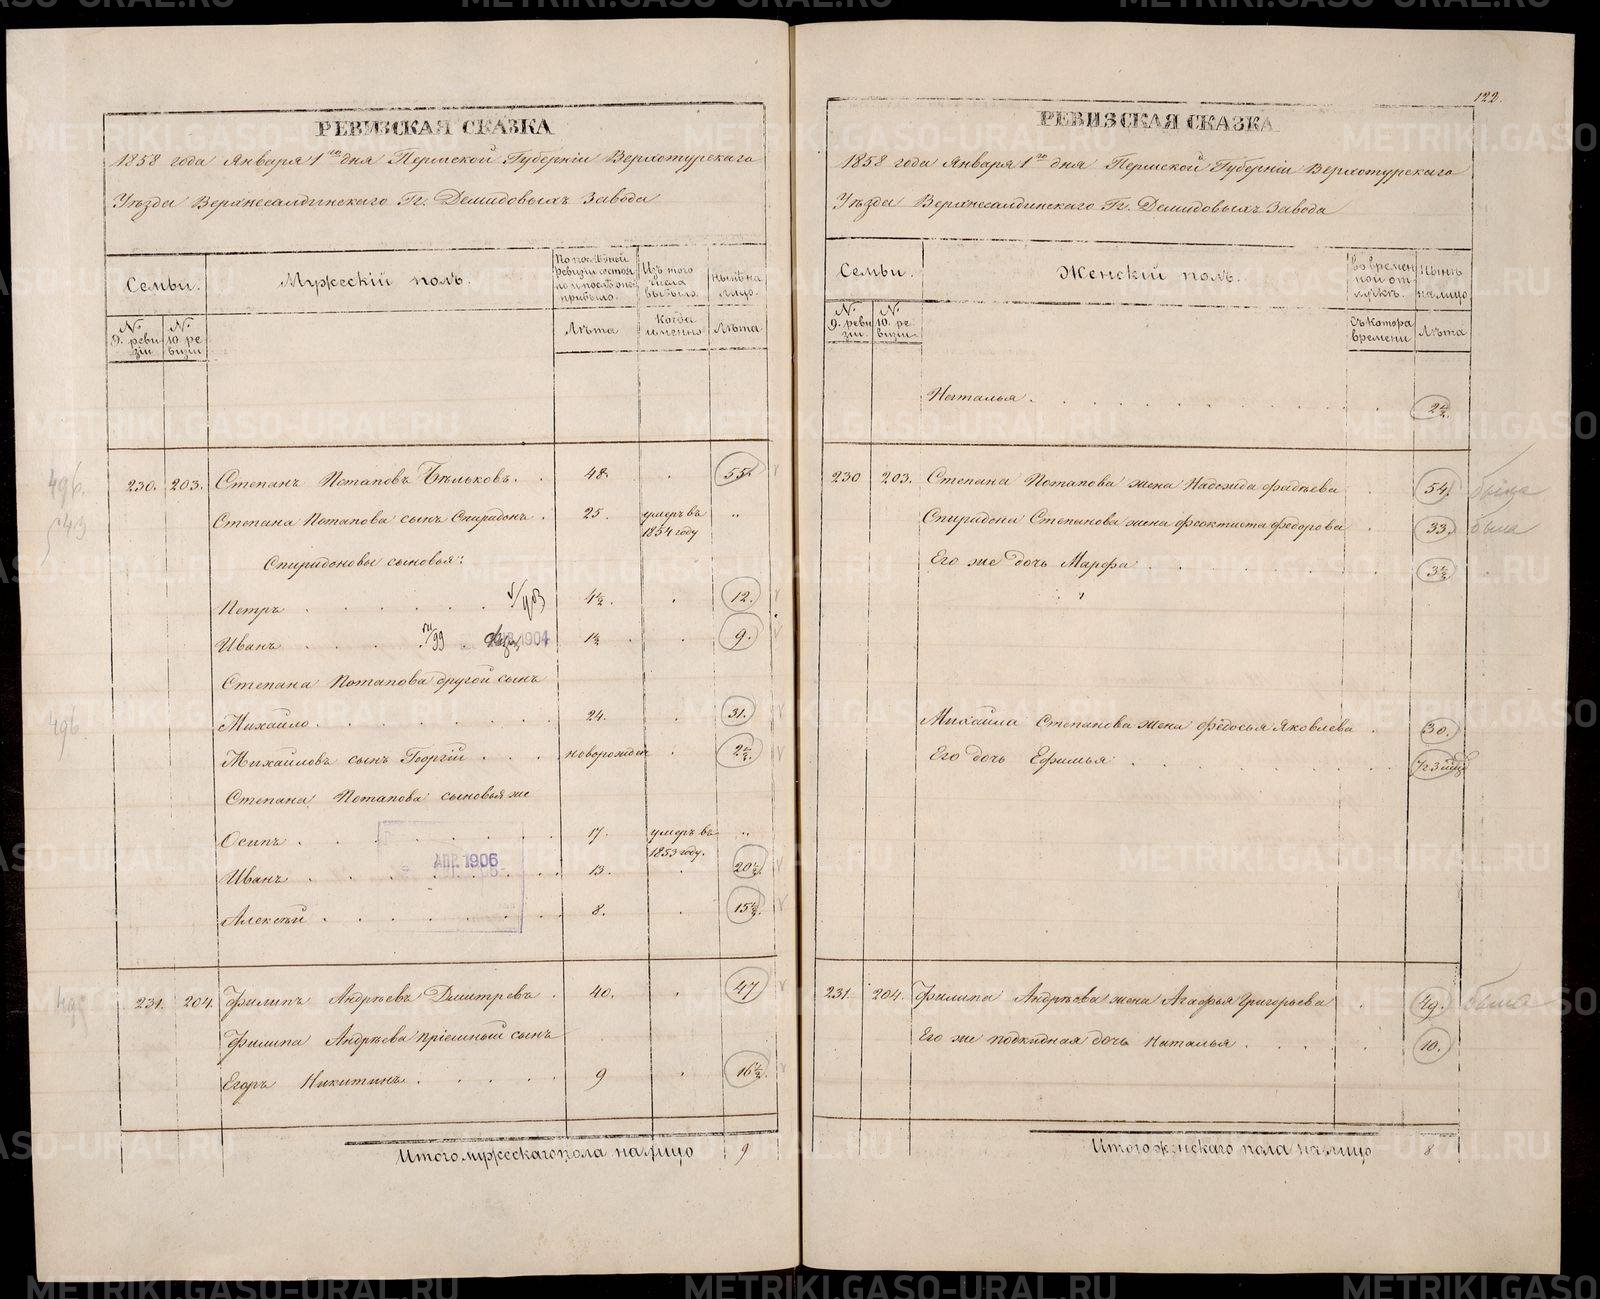 РЕВИЗСКАЯ СКАЗКА
1858 года Января 1го дня Пермской Губерніи Верхотурскаго
Уѣзда Верхнесалдинскаго Гг. Демидовыхъ Завода
Семьи.
Мужескій полъ.
По послѣдней ревизіи состояло и послѣ оной прибыло.
Изъ того числа выбыло.
Нынѣ на лицо.
№ 9. ревизіи
№ 10 ревизіи
Лѣта
Когда именно
Лѣта
230. 203. Степанъ Потаповъ Бѣльковъ. 48. 55.
Степана Потапова сынъ Спиридонъ. 25. умеръ въ 1854 году „
Спиридоновы сыновья:
Петръ 4½. 12.
Иванъ 1½ 9.
1904
Степана Потапова другой сынъ
Михайло. 24. 31.
Михайловъ сынъ Георгій новорожден 2½.
Степана Потапова сыновья же
Осипъ. 17. умеръ въ 1853 году. „
АПР. 1906
Иванъ 13. 20½.
Алексѣй 8. 15½.
231. 204. Филипъ Андрѣевъ Дмитревъ. 40. 47
Филипа Андрѣева пріемный сынъ
Егоръ Никитинъ. 9 16½.
Итого мужескаго пола на лицо 9
122.
РЕВИЗСКАЯ СКАЗКА
1858 года Января 1го дня Пермской Губерніи Верхотурскаго
Уѣзда Верхнесалдинскаго Гг. Демидовыхъ Завода
Семьи.
Женскій полъ.
Во временной отлучкѣ.
Нынѣ на лицо
№ 9. ревизіи
№ 10. ревизіи
Съ котора времени
Лѣта
Наталья. 2½.
230 203. Степана Потапова жена Надежда Фадѣева 54. была
Спиридона Степанова жена Феоктиста Федорова 33. была
Его же дочь Марфа 3½
Михайла Степанова жена Федосья Яковлева. 30.
Его дочь Ефимья
231. 204. Филипа Андрѣева жена Агафья Григорьева 49. была
Его же подкидная дочь Наталья. 10.
Итого женскаго пола на лицо 8
METRIKI.GASO-URAL.RU